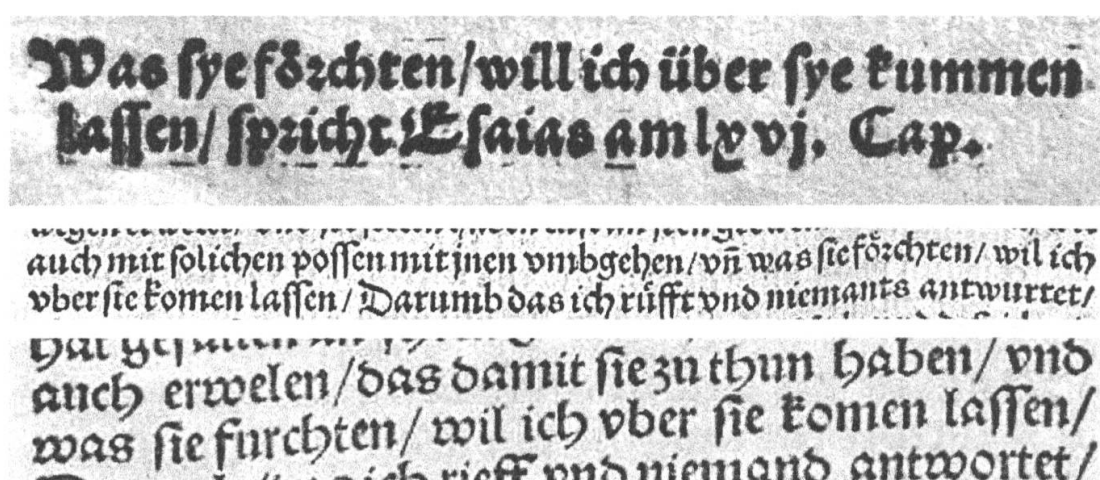 Was ſye foͤrchten/will ich über ſye kummen
laſſen/ ſpricht Eſaias am lxvj. Cap.
auch mit ſolichen poſſen mit jnen vmbgehen/vn̄ was ſie foͤrchten/ wil ich
vber ſie komen laſſen/ Darumb das ich ruͤfft vnd niemants antwurtet/
auch erwelen/das damit ſie zu thun haben/ vnd
was ſie furchten/ wil ich vber ſie komen laſſen/
ich rieff vnd niemand antwortet/